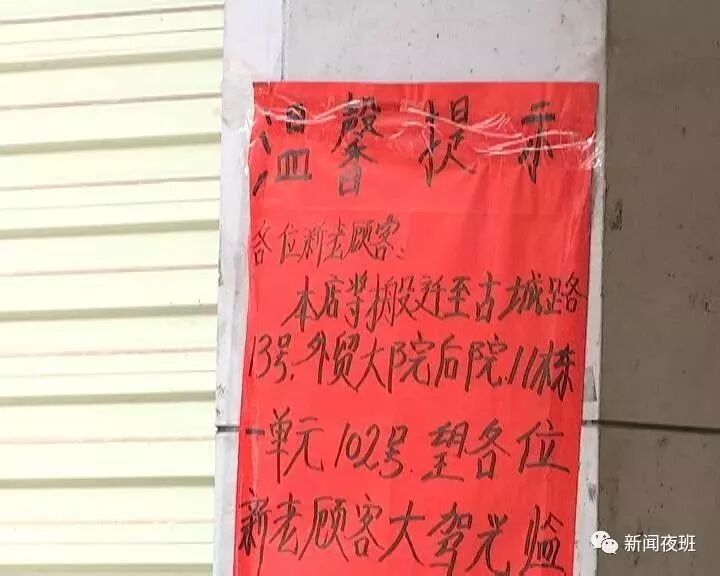 温馨提示
各位新老顾客:
本店将搬迁至古城路
13号.外贸大院后院.11栋
一单元102号.望各位
新老顾客大驾光临
新闻夜班